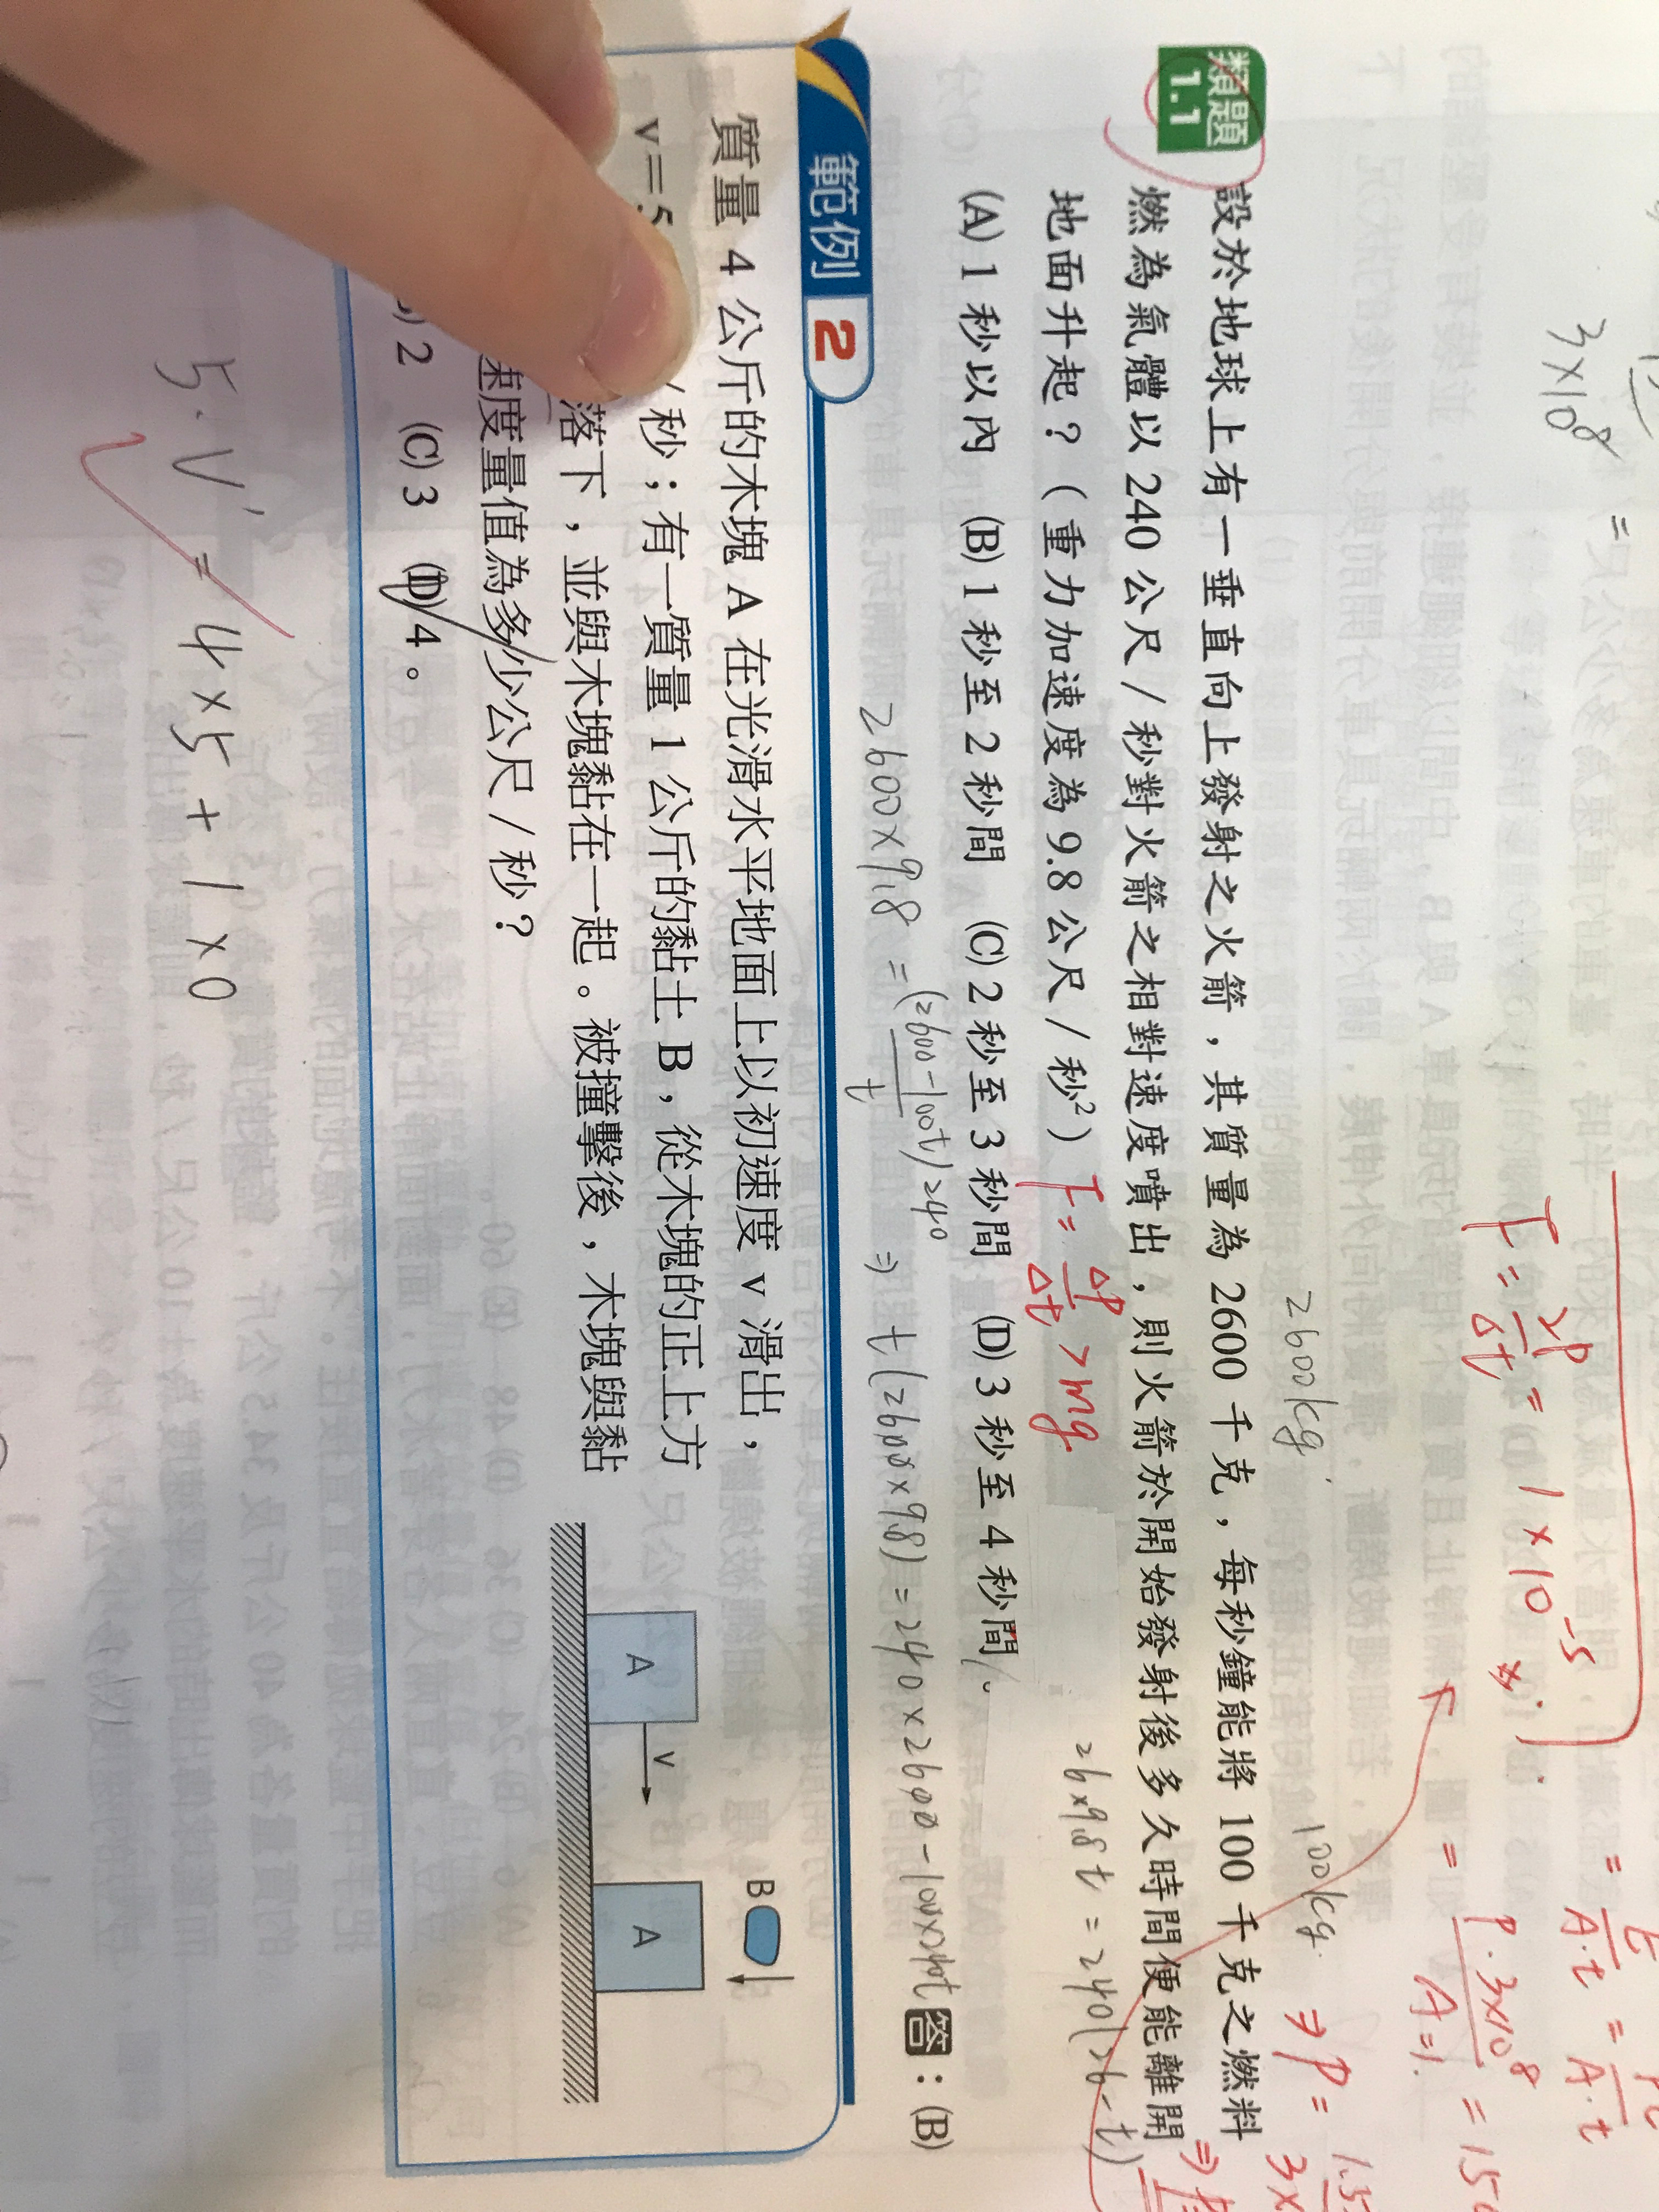 3×10⁸
=
I = 2P/Δt = 1×10⁻⁵
= P·3×10⁸/A=1
2600kg
100kg
⇒ P =
類題 1.1
設於地球上有一垂直向上發射之火箭，其質量為 2600 千克，每秒鐘能將 100 千克之燃料
燃為氣體以 240 公尺／秒對火箭之相對速度噴出，則火箭於開始發射後多久時間便能離開
地面升起？（重力加速度為 9.8 公尺／秒²）
F = ΔP/Δt > mg
26×9.8t = 240(26-t)
(A) 1 秒以內 (B) 1 秒至 2 秒間 (C) 2 秒至 3 秒間 (D) 3 秒至 4 秒間。
2600×9.8 = (2600-100t)240/t ⇒ t(2600×9.8) = 240×2600-100×240t
答：(B)
範例 2
質量 4 公斤的木塊 A 在光滑水平地面上以初速度 v 滑出，
v＝5 ／秒；有一質量 1 公斤的黏土 B，從木塊的正上方
落下，並與木塊黏在一起。被撞擊後，木塊與黏
速度量值為多少公尺／秒？
2 (C) 3 (D) 4。
A
v
B
A
5·V' = 4×5+1×0